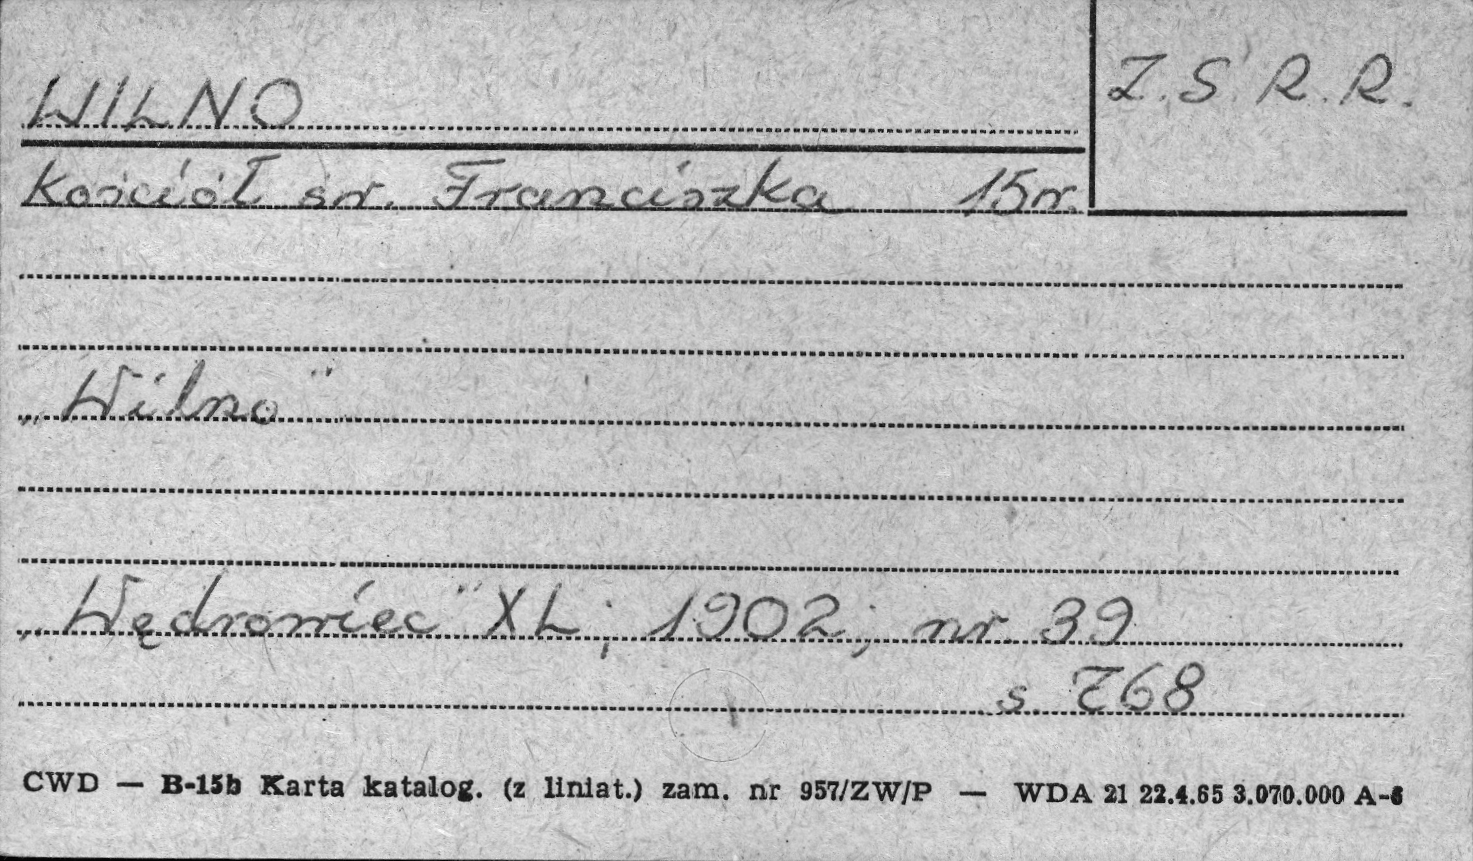 WILNO
Z.S.R.R.
Kościół św. Franciszka 15w.
„Wilno"
„Wędrowiec" XL; 1902; nr. 39
s. 768
CWD — B-15b Karta katalog. (z liniat.) zam. nr 957/ZW/P — WDA 21 22.4.65 3.070.000 A-6